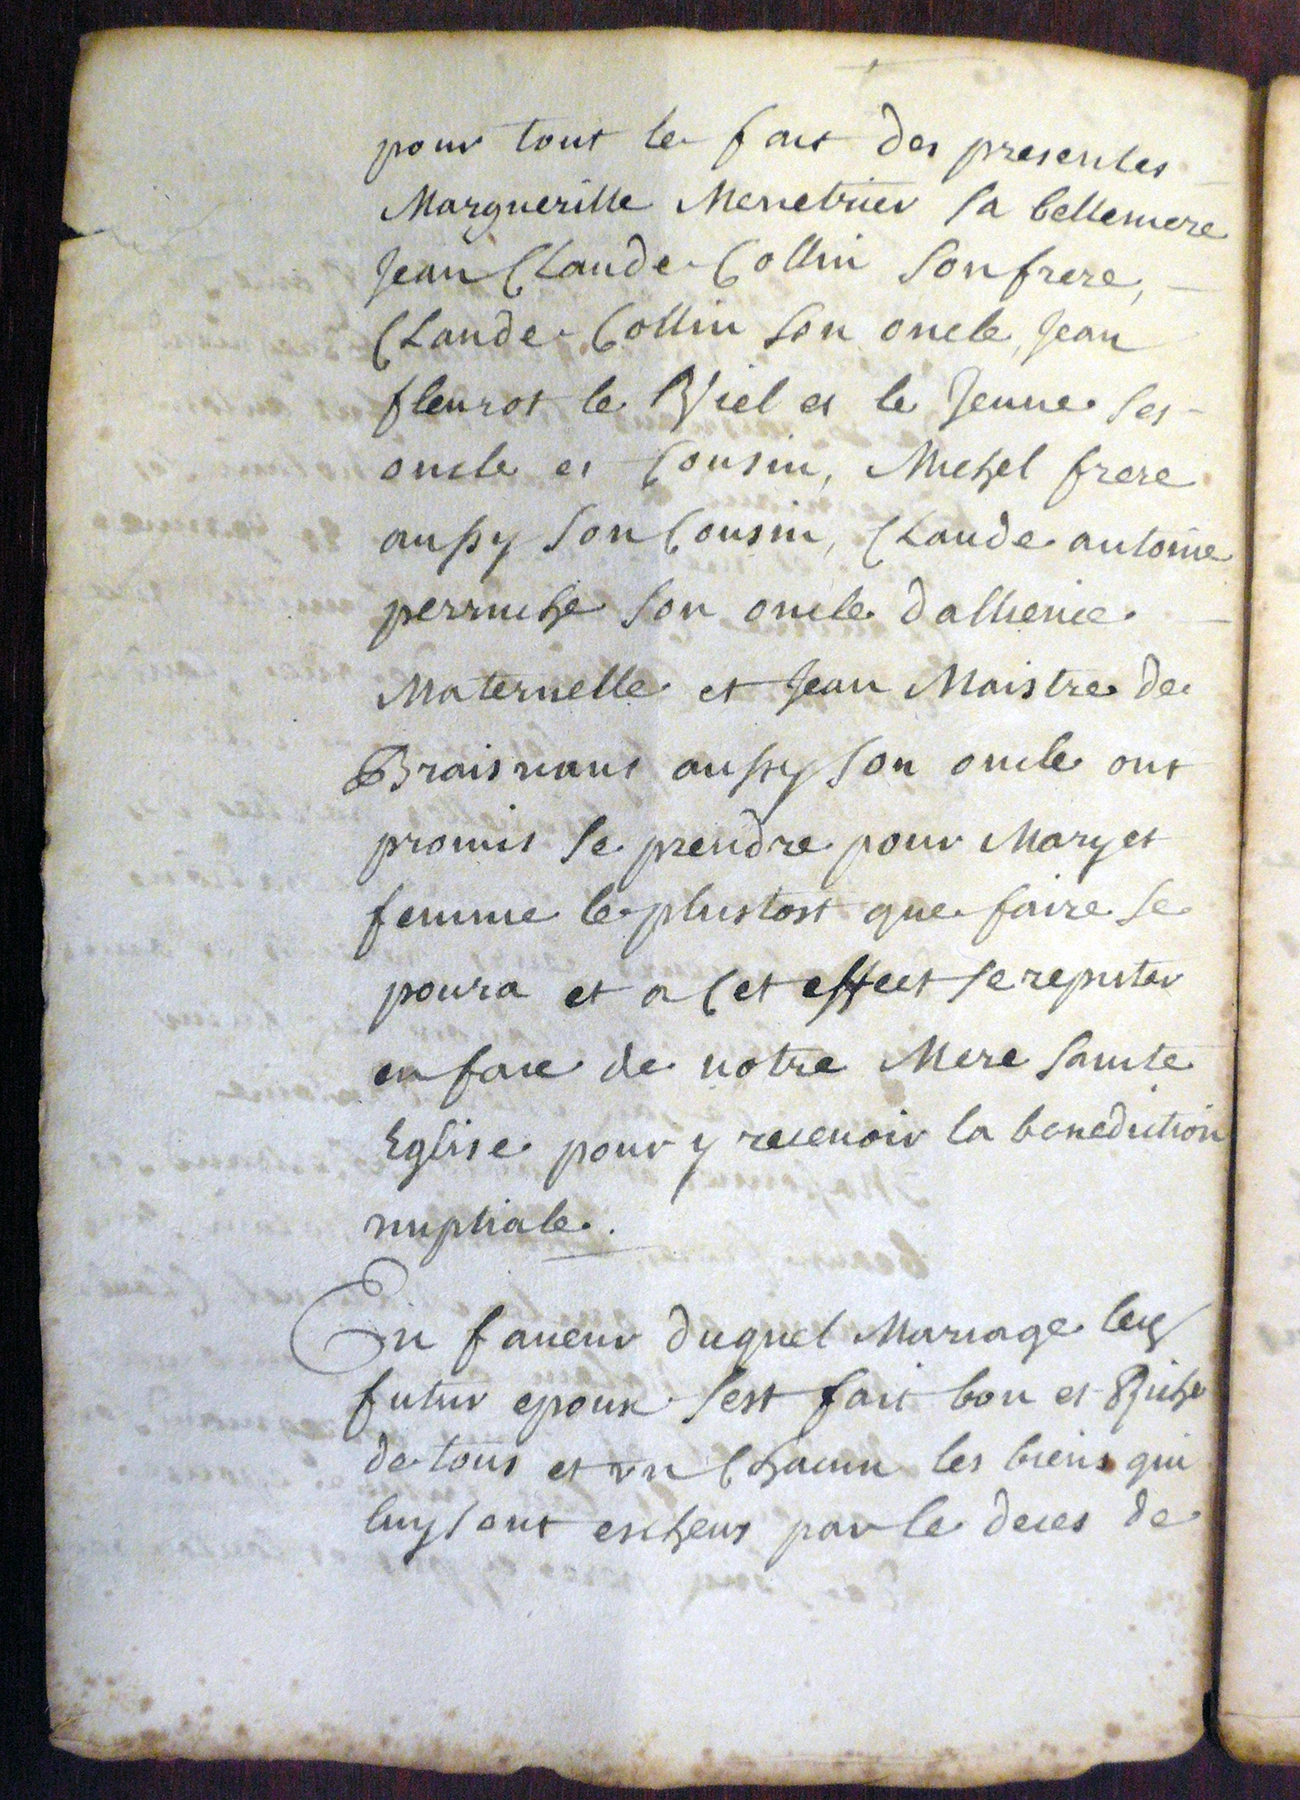 pour tout le fait des presentes
Marguerille Menetrier sa bellemere
Jean Claude Collin son frere,
Claude Collin son oncle, Jean
fleurot le Viel et le Jeune ses
oncle et Cousin, Michel frere
aussy son Cousin, Claude antoine
perruche son oncle dallience
Maternelle et Jean Maistre de
Braisnans aussy son oncle ont
promis se prendre pour Mary et
femme le plustost que faire se
poura et a Cet effect se
en face de notre Mere Sainte
Eglise pour y recevoir la benediction
nuptiale.
En faveur duquel Mariage ley
futur epoux sest fait bon et Riche
de tous et un Chacun les biens qui
luy sont escheus par le deces de